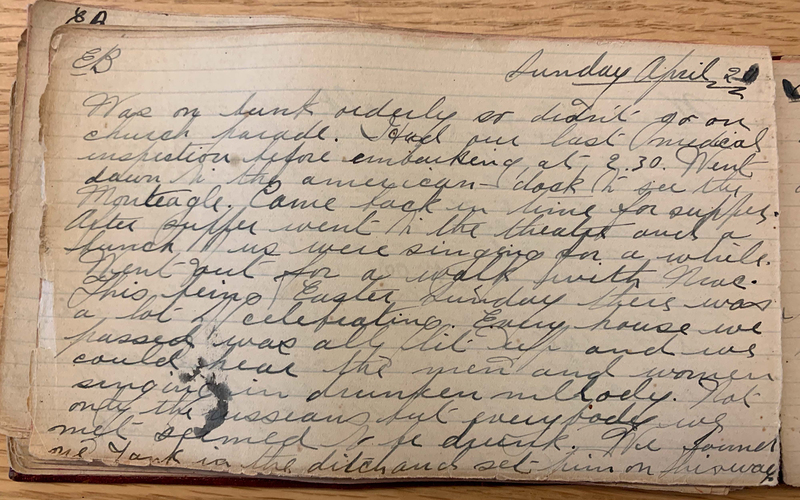 8A
EB
Sunday April 20
Was on bunk orderly so didn't go on
church parade. Had our last medical
inspection before embarking at 2.30. Went
down to the american dock to see the
Monteagle. Came back in time for supper.
After supper went to the theater and a
bunch of us were singing for a while.
Went out for a walk with Mac.
This being Easter Sunday there was
a lot of celebrating. Every house we
passed was all lit up and we
could hear the men and women
singing in drunken mellody. Not
only the ussians but everybody we
met seemed to be drunk. We found
one Yank in the ditch and set him on his way